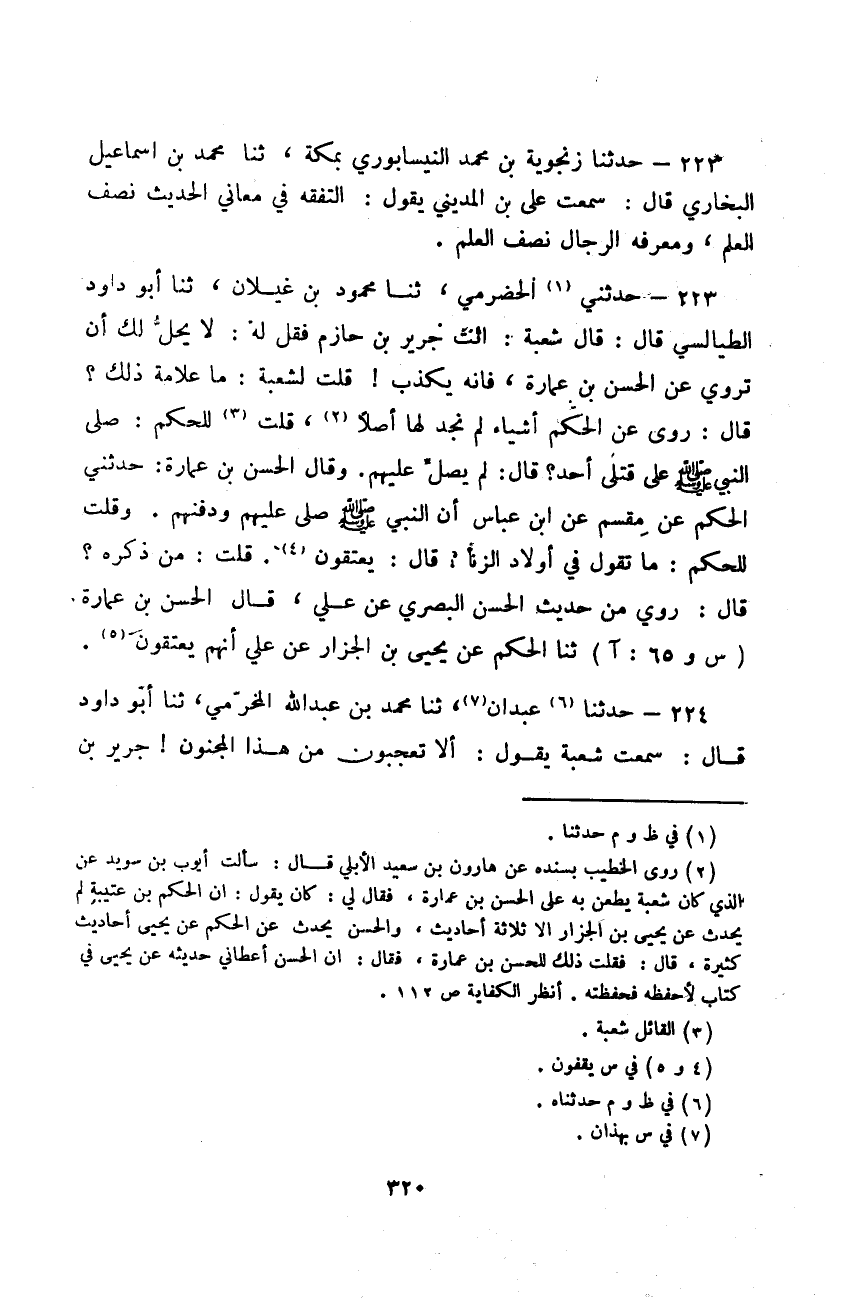 ٢٢٣ – حدثنا زنجوية بن محمد النيسابوري بمكة ، ثنا محمد بن اسماعيل
البخاري قال : سمعت علي بن المديني يقول : التفقه في معاني الحديث نصف
العلم ، ومعرفه الرجال نصف العلم .
٢٢٣ – حدثني (١) ألحضرمي ، ثنـا محمود بن غيـلان ، ثنا أبو داود
الطيالسي قال : قال شعبة : ائت جرير بن حازم فقل له : لا يحلُّ لك أن
تروي عن الحسن بن عمارة ، فانه يكذب ! قلت لشعبة : ما علامة ذلك ؟
قال : روى عن الحكم أشياء لم نجد لها أصلاً (٢) ، قلت (٣) للحكم : صلى
النبي ﷺ على قتلى أحد؟ قال: لم يصل عليهم. وقال الحسن بن عمارة: حدثني
الحكم عن مِقسم عن ابن عباس أن النبي ﷺ صلى عليهم ودفنهم . وقلت
للحكم : ما تقول في أولاد الزنا ؟ قال : يعتقون (٤). قلت : من ذكره ؟
قال : روي من حديث الحسن البصري عن عـلي ، قـال الحسن بن عمارة
( س و ٦٥ : آ ) ثنا الحكم عن يحيى بن الجزار عن علي أنهم يعتقون (٥) .
٢٢٤ – حدثنا (٦) عبدان(٧)، ثنا محمد بن عبدالله المخرّمي، ثنا أبو داود
قـال : سمعت شعبة يقـول : ألا تعجبون من هـذا المجنون ! جرير بن
(١) في ظ و م حدثنا .
(٢) روى الخطيب بسنده عن هارون بن سعيد الأيلي قـال : سألت أيوب بن سويد عن
الذي كان شعبة يطعن به على الحسن بن عمارة ، فقال لي : كان يقول : ان الحكم بن عتيبة لم
يحدث عن يحيى بن الجزار الا ثلاثة أحاديث ، والحسن يحدث عن الحكم عن يحيى أحاديث
كثيرة ، قال : فقلت ذلك للحسن بن عمارة ، فقال : ان الحسن أعطاني حديثه عن يحيى في
كتاب لأحفظه فحفظته . أنظر الكفاية ص ١١٢ .
(٣) القائل شعبة .
(٤ و ٥) في س يقفون .
(٦) في ظ و م حدثناه .
(٧) في س بهذان .
٣٢٠